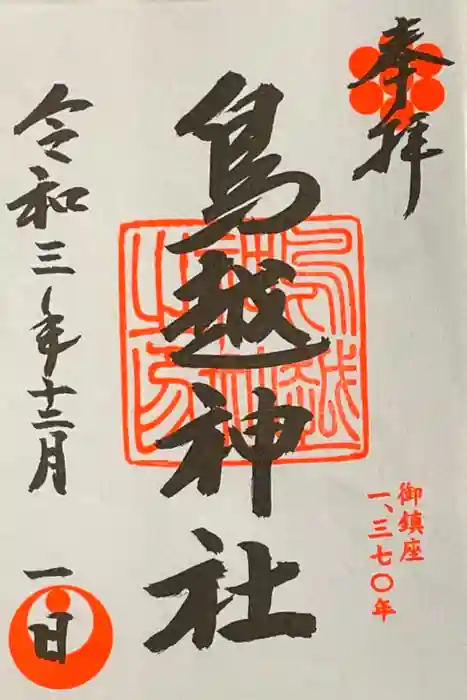 奉拝
御鎮座
一、三七〇年
鳥越神社
令和三年十二月
一日